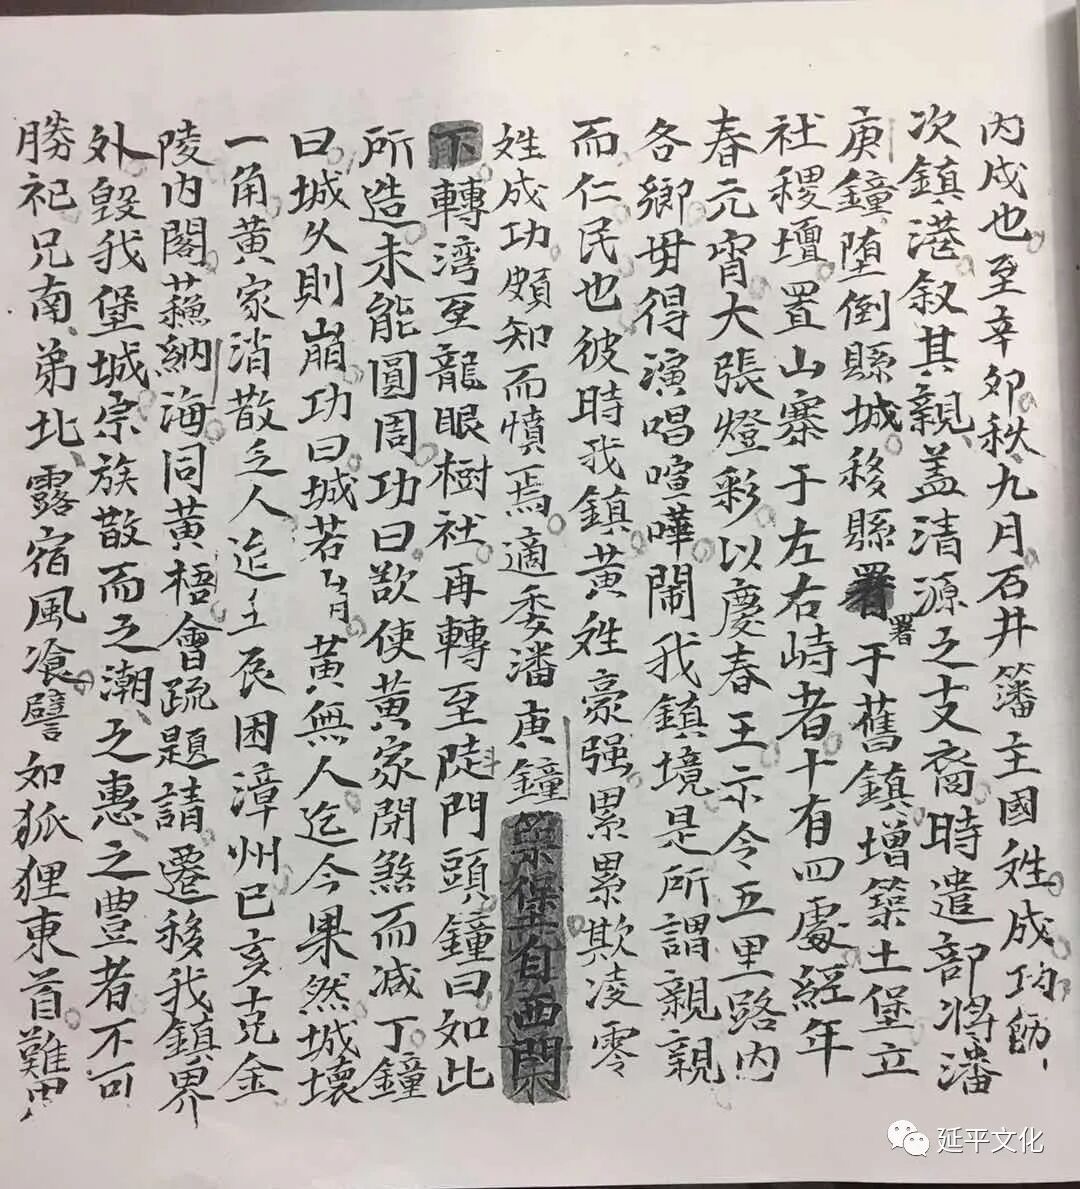 丙戌也至辛卯秋九月石井籓主國姓成功勛
次鎮港叙其親蓋清源之支裔時遣部將潘
庚鐘墮倒縣城移縣署于舊鎮增築土堡立
署
社稷壇置山寨于左右峙者十有四處經年
春元宵大張燈彩以慶春王示令五里路內
各鄉毋得演唱喧嘩鬧我鎮境是所謂親親
而仁民也彼時我鎮黃姓豪强累累欺凌零
姓成功頗知而憤焉適委潘庚鐘築堡自西閑
下轉湾至龍眼樹社再轉至陡門頭鐘曰如此
所造未能圓周功曰欲使黃家閉煞而减丁鐘
曰城久則崩功曰城若崩黃無人迄今果然城壞
一角黃家消散乏人迨壬辰困漳州己亥克金
陵內閣蘓納海同黃梧會疏題請遷移我鎮界
外毀我堡城宗族散而之潮之惠之豊者不可
勝祀兄南弟北露宿風飡譬如狐狸東首難
延平文化